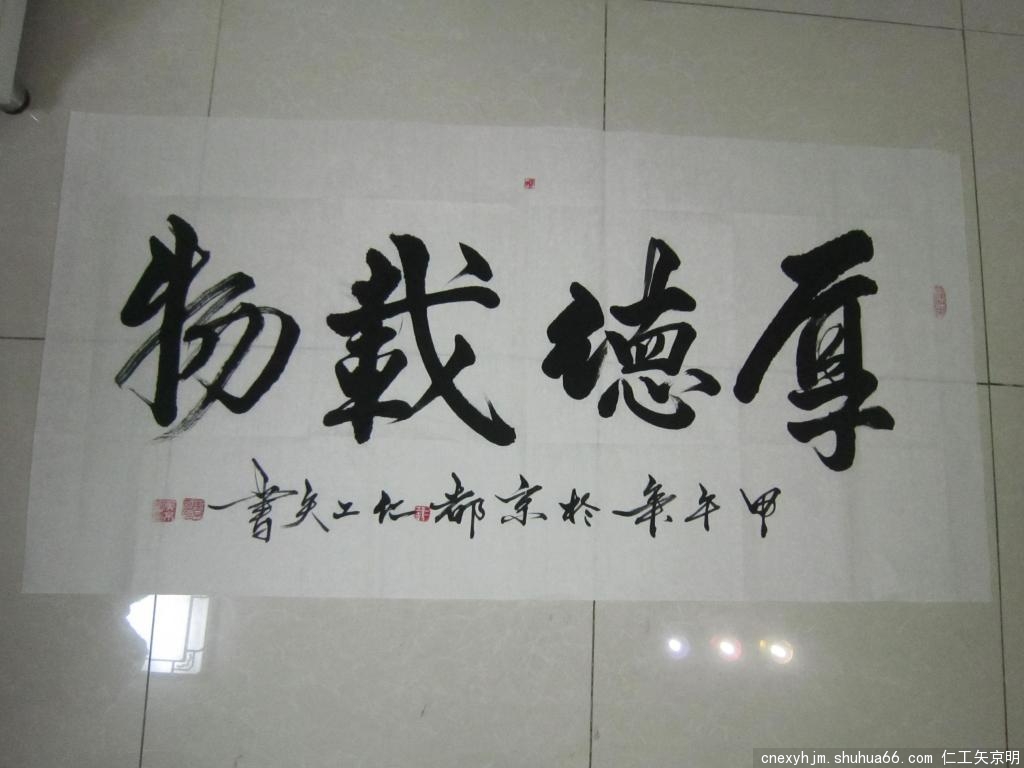 厚德载物
甲午年於京都仁工矢書
cnexyhjm.shuhua66.com 仁工矢京明